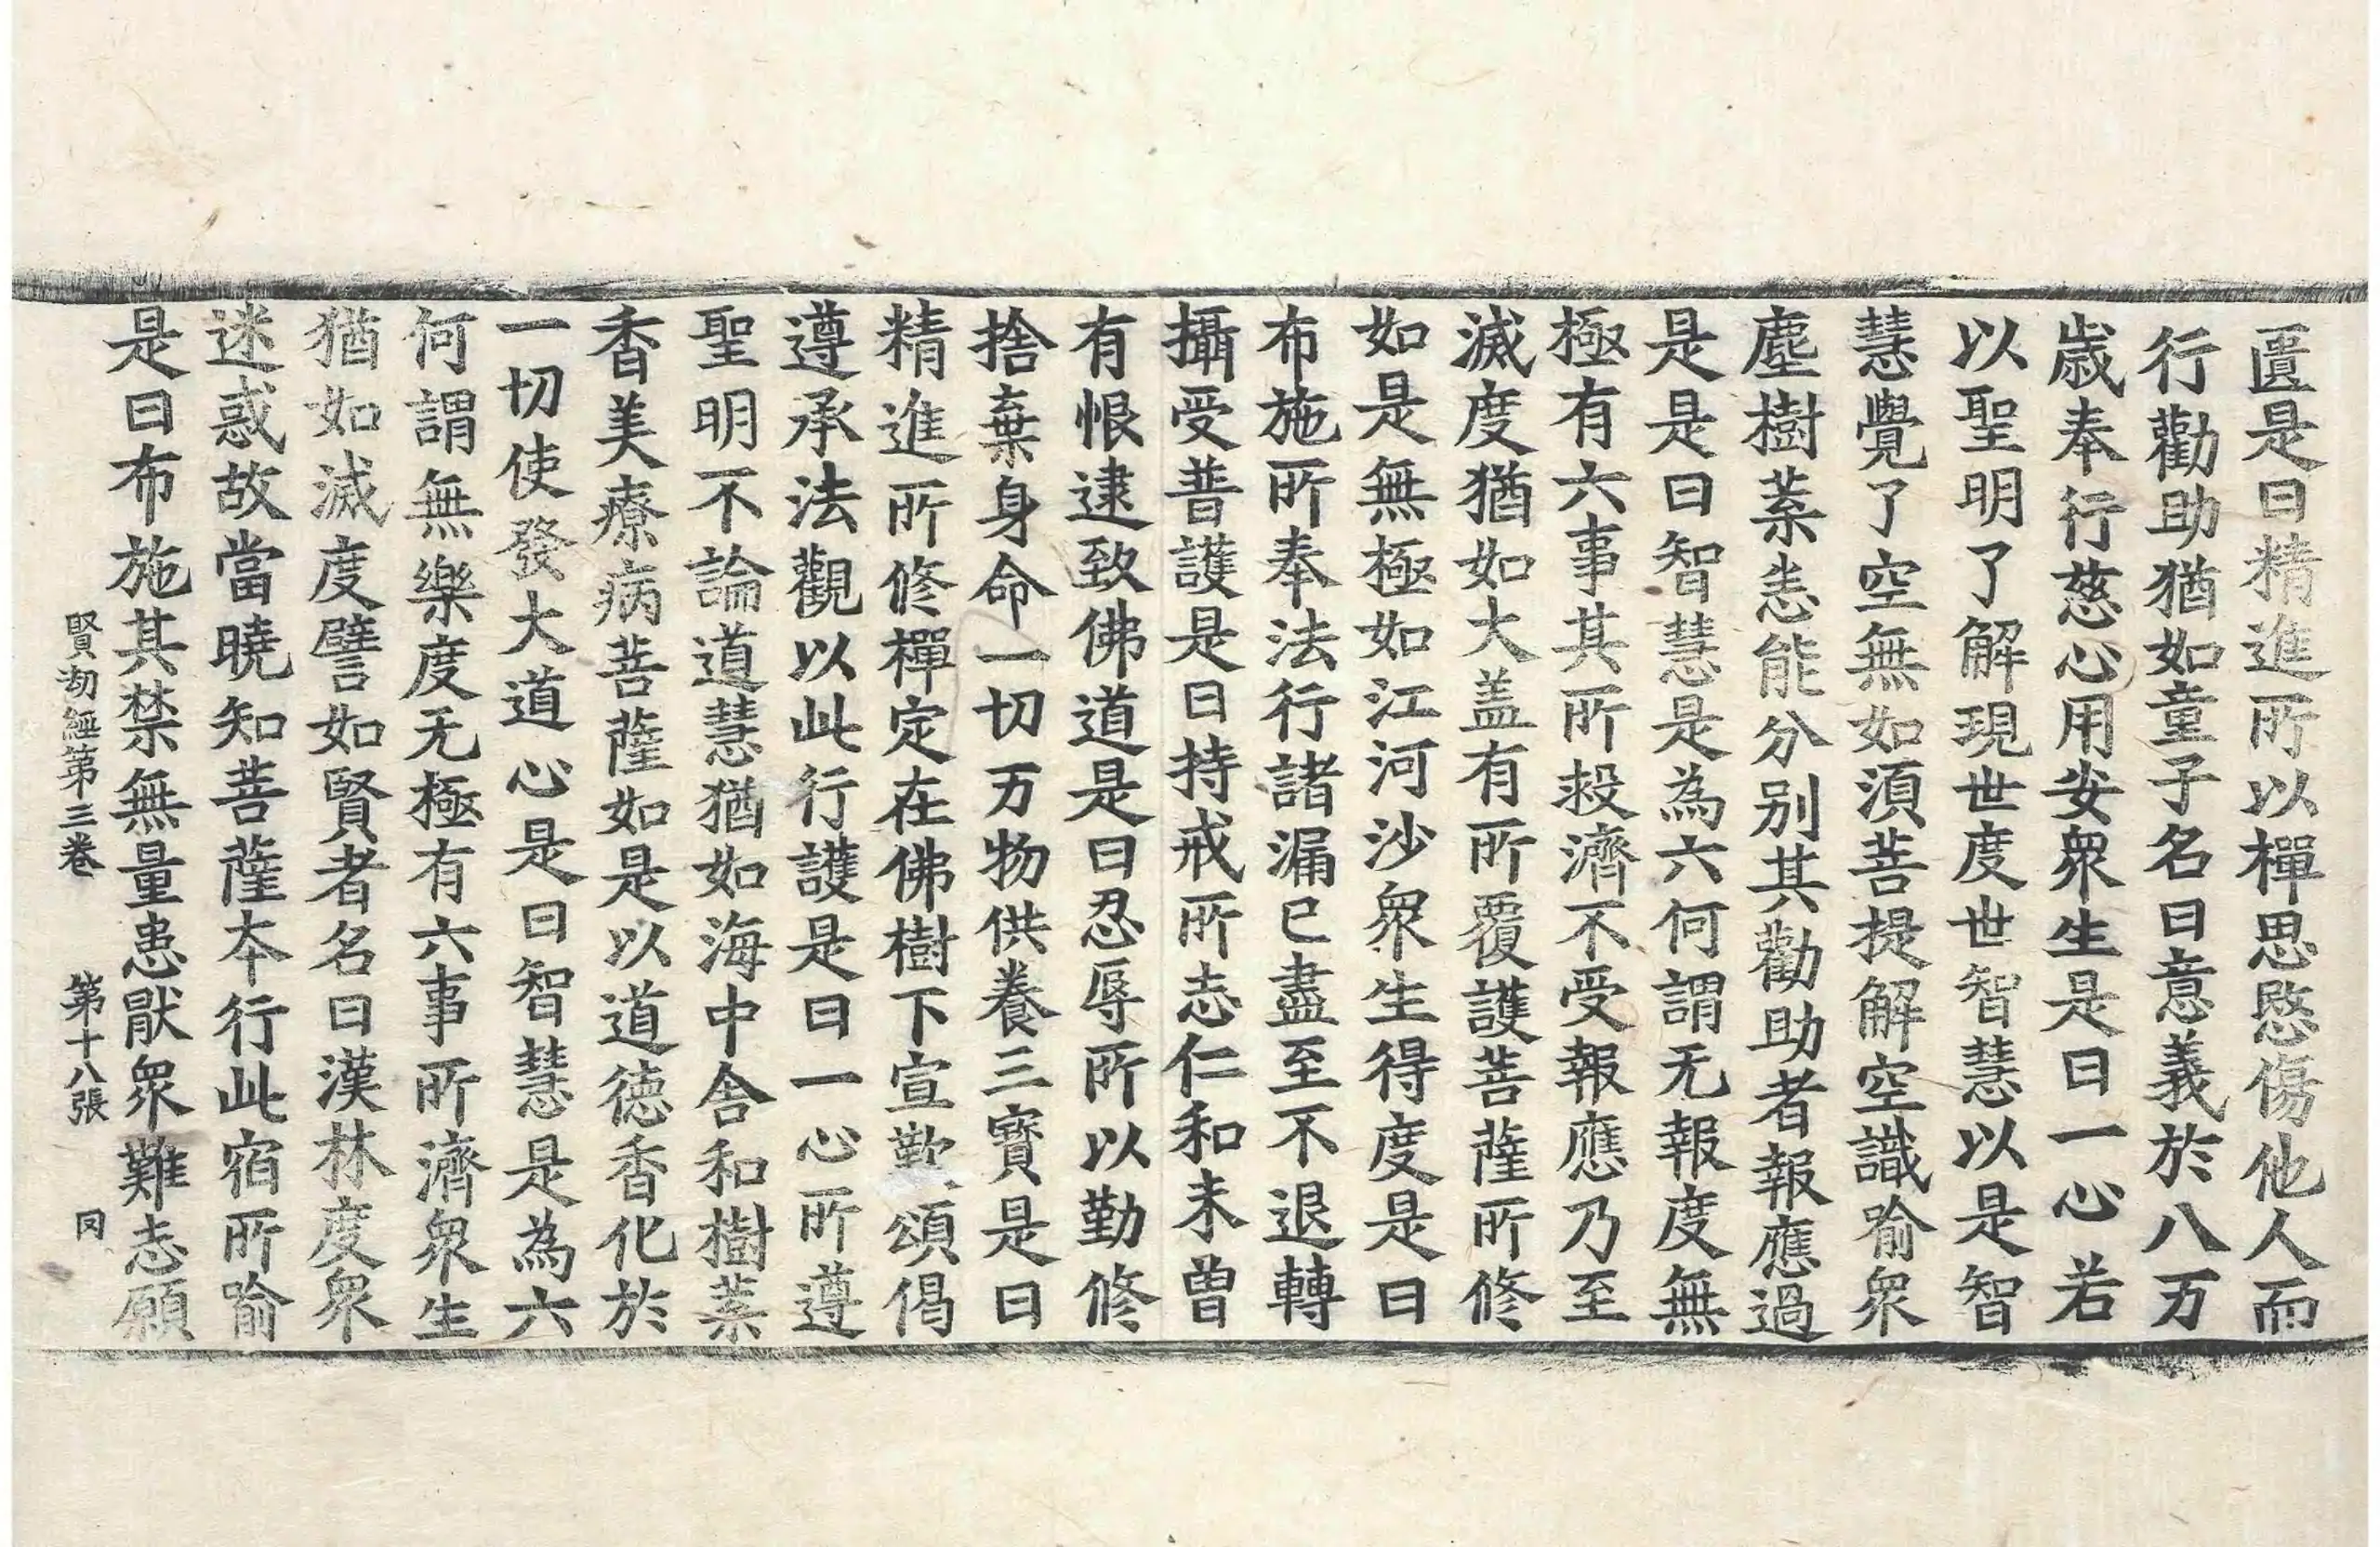 匱是曰精進所以禪思愍傷他人而
行勸助猶如童子名曰意義於八万
歲奉行慈心用安衆生是曰一心若
以聖明了解現世度世智慧以是智
慧覺了空無如須菩提解空識喻衆
塵樹葉恙能分別其勸助者報應過
是是曰智慧是為六何謂无報度無
極有六事其所救濟不受報應乃至
滅度猶如大盖有所覆護菩薩所修
如是無極如江河沙衆生得度是曰
布施所奉法行諸漏已盡至不退轉
攝受普護是曰持戒所志仁和未曾
有恨逮致佛道是曰忍辱所以勤修
捨棄身命一切万物供養三寶是曰
精進所修禪定在佛樹下宣歎頌偈
遵承法觀以此行護是曰一心所遵
聖明不論道慧猶如海中含和樹葉
香美療病菩薩如是以道德香化於
一切使發大道心是曰智慧是為六
何謂無樂度无極有六事所濟衆生
猶如滅度譬如賢者名曰漢林度衆
迷惑故當曉知菩薩本行此宿所喻
是曰布施其禁無量患猒衆難志願
賢劫經第三卷　第十八張　同